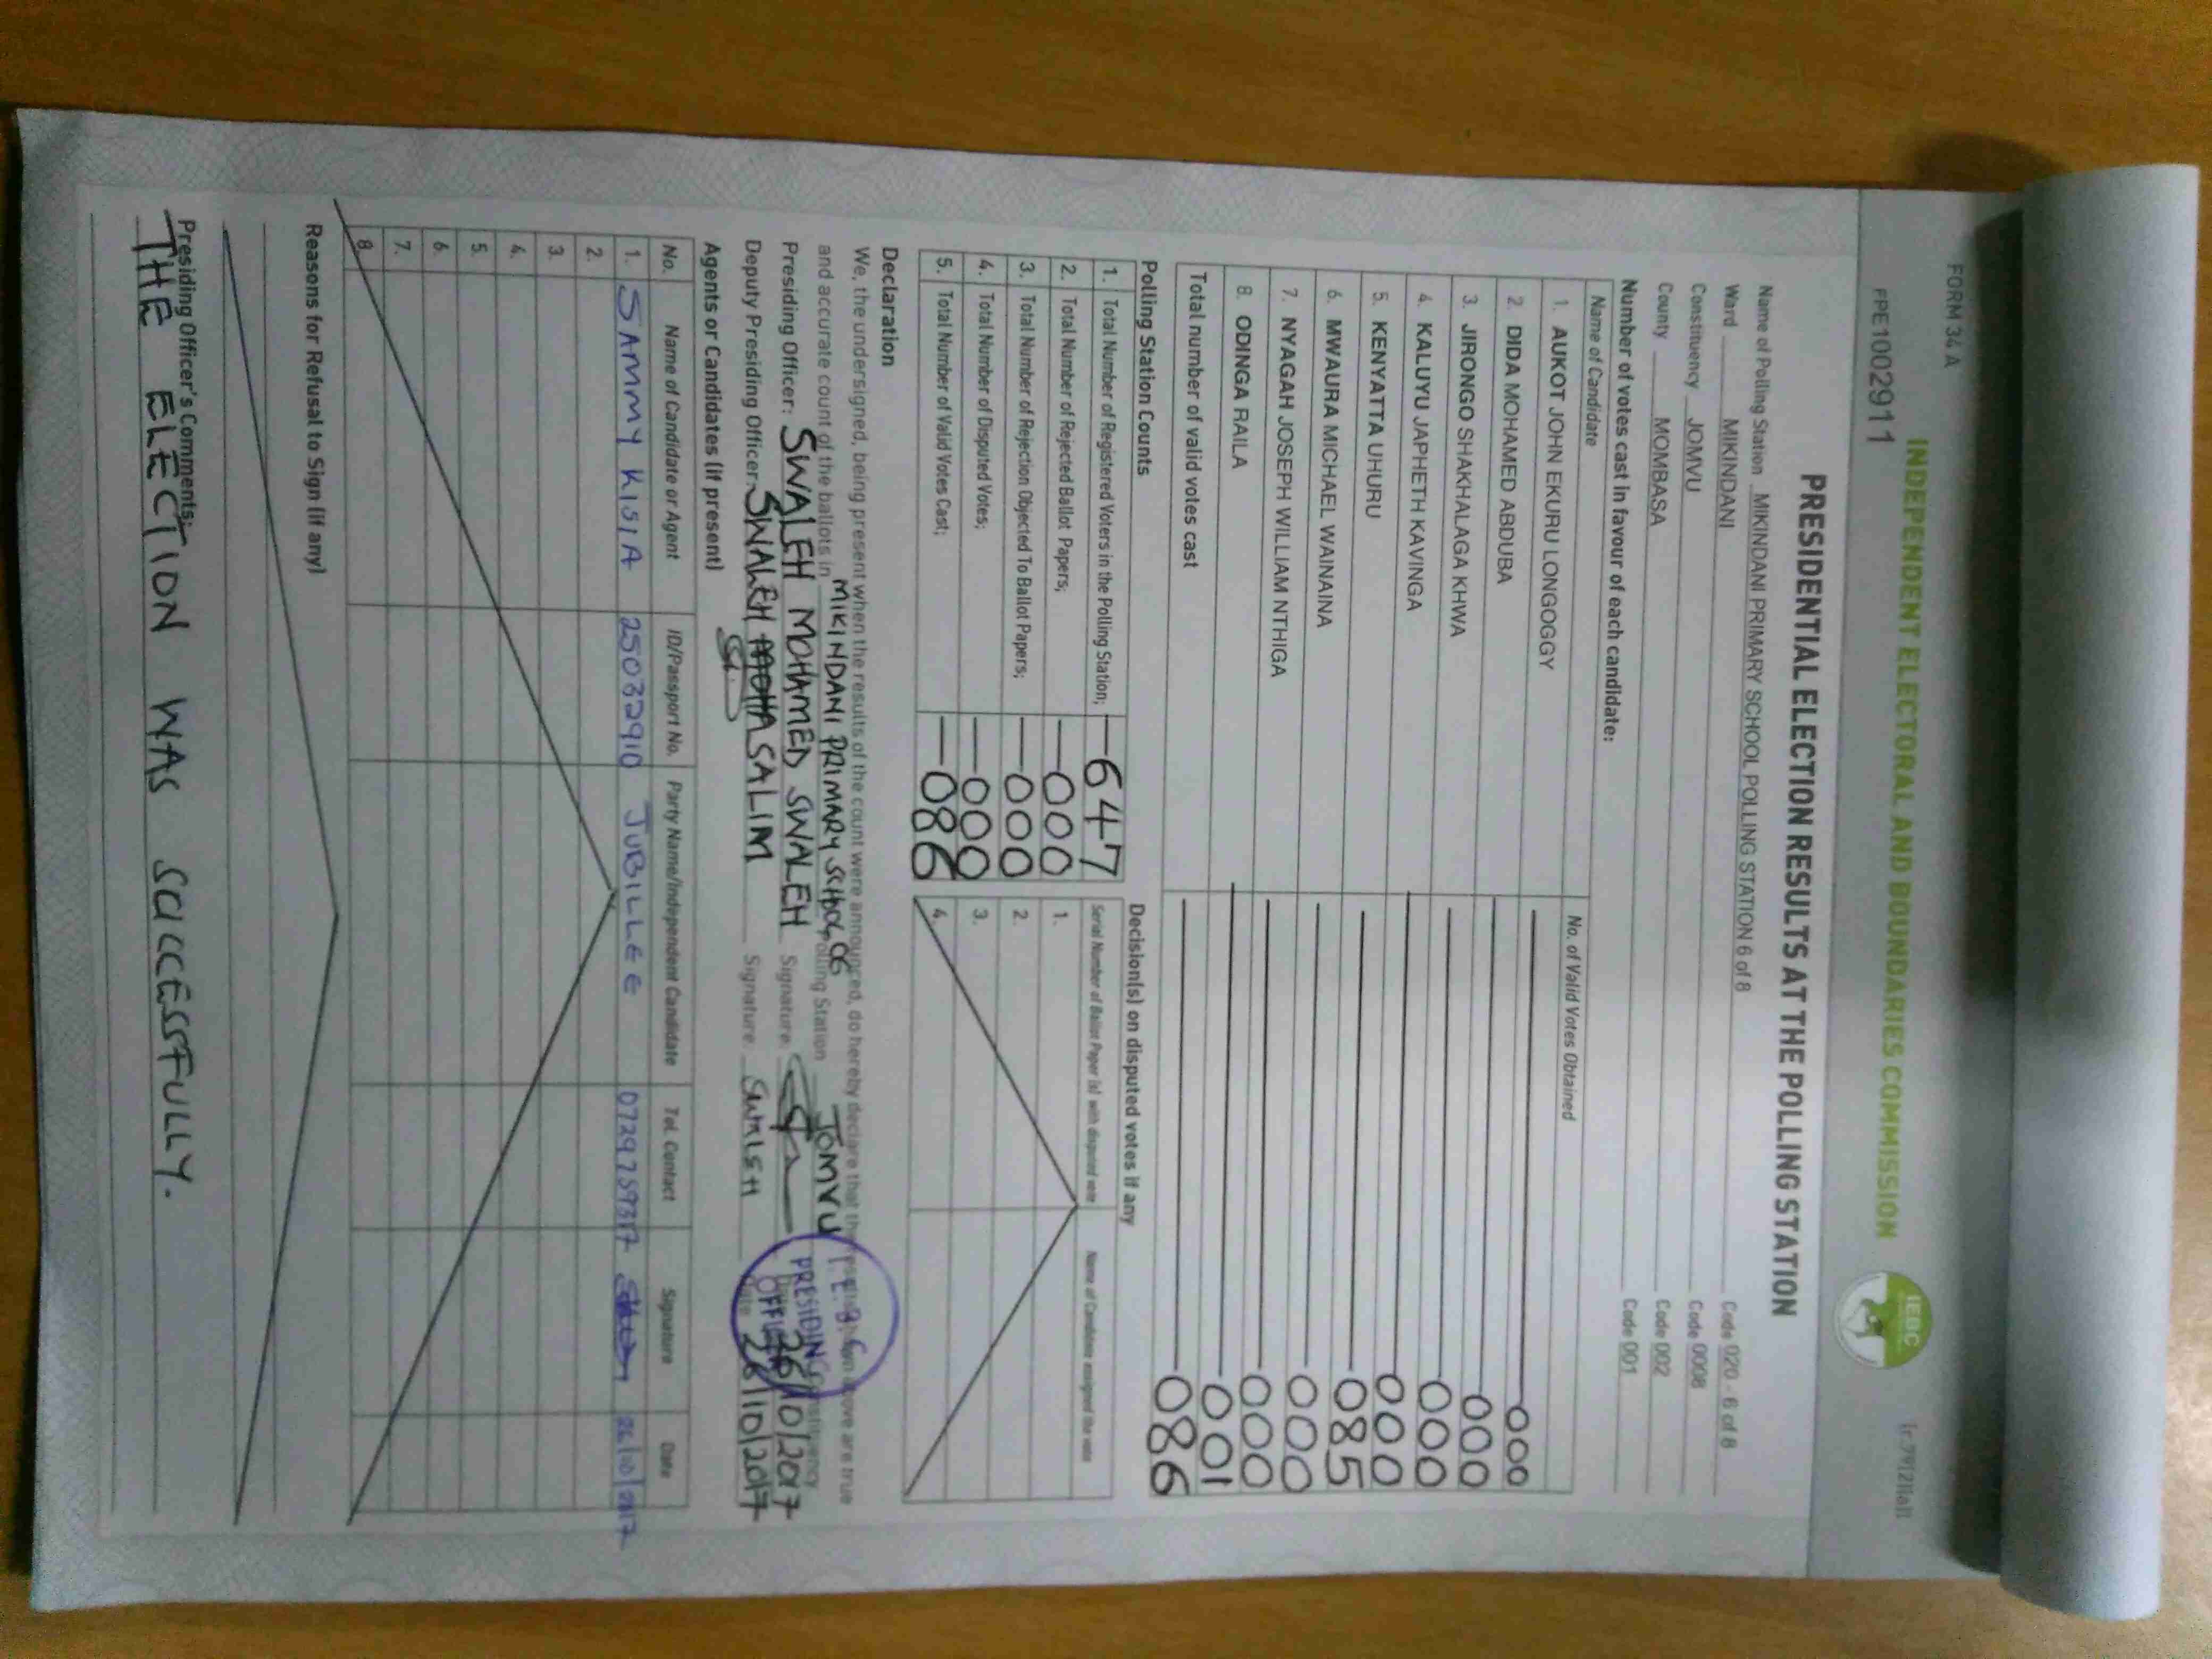 FORM 34 A
INDEPENDENT ELECTORAL AND BOUNDARIES COMMISSION
IEBC
PPE1002911
PRESIDENTIAL ELECTION RESULTS AT THE POLLING STATION
Name of Polling Station MIKINDANI PRIMARY SCHOOL POLLING STATION 6 of 8 Code 020 - 6 of 8
Ward MIKINDANI Code 0008
Constituency JOMVU Code 002
County MOMBASA Code 001
Number of votes cast in favour of each candidate:
Name of Candidate No. of Valid Votes Obtained
1. AUKOT JOHN EKURU LONGOGGY 000
2. DIDA MOHAMED ABDUBA 000
3. JIRONGO SHAKHALAGA KHWA 000
4. KALUYU JAPHETH KAVINGA 000
5. KENYATTA UHURU 085
6. MWAURA MICHAEL WAINAINA 000
7. NYAGAH JOSEPH WILLIAM NTHIGA 000
8. ODINGA RAILA 001
Total number of valid votes cast 086
Polling Station Counts
1. Total Number of Registered Voters in the Polling Station; 647
2. Total Number of Rejected Ballot Papers; 000
3. Total Number of Rejection Objected To Ballot Papers; 000
4. Total Number of Disputed Votes; 000
5. Total Number of Valid Votes Cast; 086
Decision(s) on disputed votes if any
Serial Number of Ballot Paper (s) with disputed vote Name of Candidate assigned the vote
1.
2.
3.
4.
Declaration
We, the undersigned, being present when the results of the count were announced, do hereby declare that the results shown above are true
and accurate count of the ballots in MIKINDANI PRIMARY SCHOOL 06 Polling Station JOMVU Constituency
Presiding Officer: SWALEH MOHAMED SWALEH Signature 26/10/2017
Deputy Presiding Officer: SWALEH SALIM Signature Date 26/10/2017
I.E.B.C
PRESIDING
OFFICER
Agents or Candidates (if present)
No. Name of Candidate or Agent ID/Passport No. Party Name/Independent Candidate Tel. Contact Signature Date
1. SAMMY KISIA 25032910 JUBILEE 0729759317 26/10/2017
2.
3.
4.
5.
6.
7.
8.
Reasons for Refusal to Sign (if any)
Presiding Officer's Comments:
THE ELECTION WAS SUCCESSFULLY.